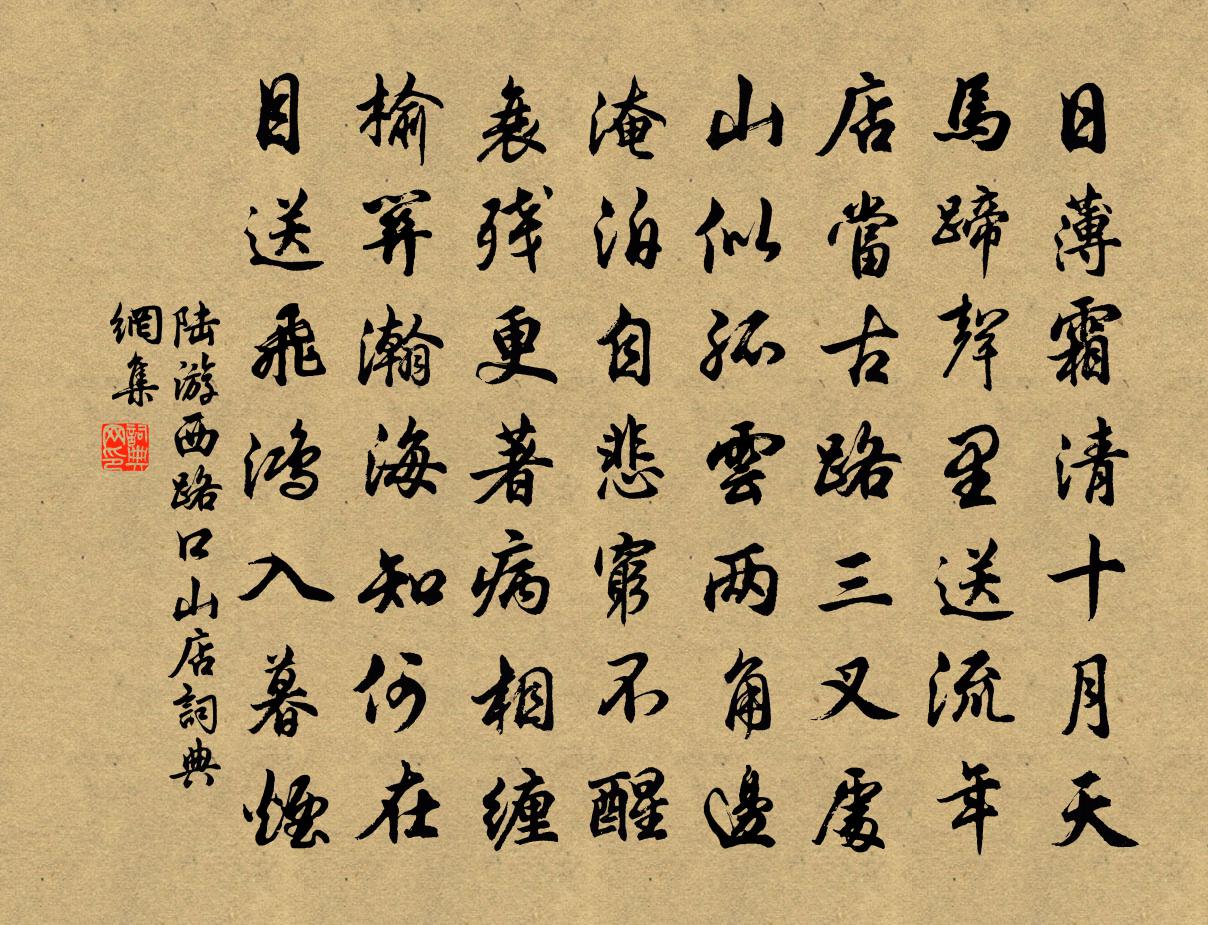 日薄霜清十月天
馬蹄聲里送流年
店當古路三叉處
山似孤雲两角邊
淹泊自悲窮不醒
衰残更著病相纏
榆關瀚海知何在
目送飛鸿入暮煙
陆游西路口山店詞典
網集
詞典
网印